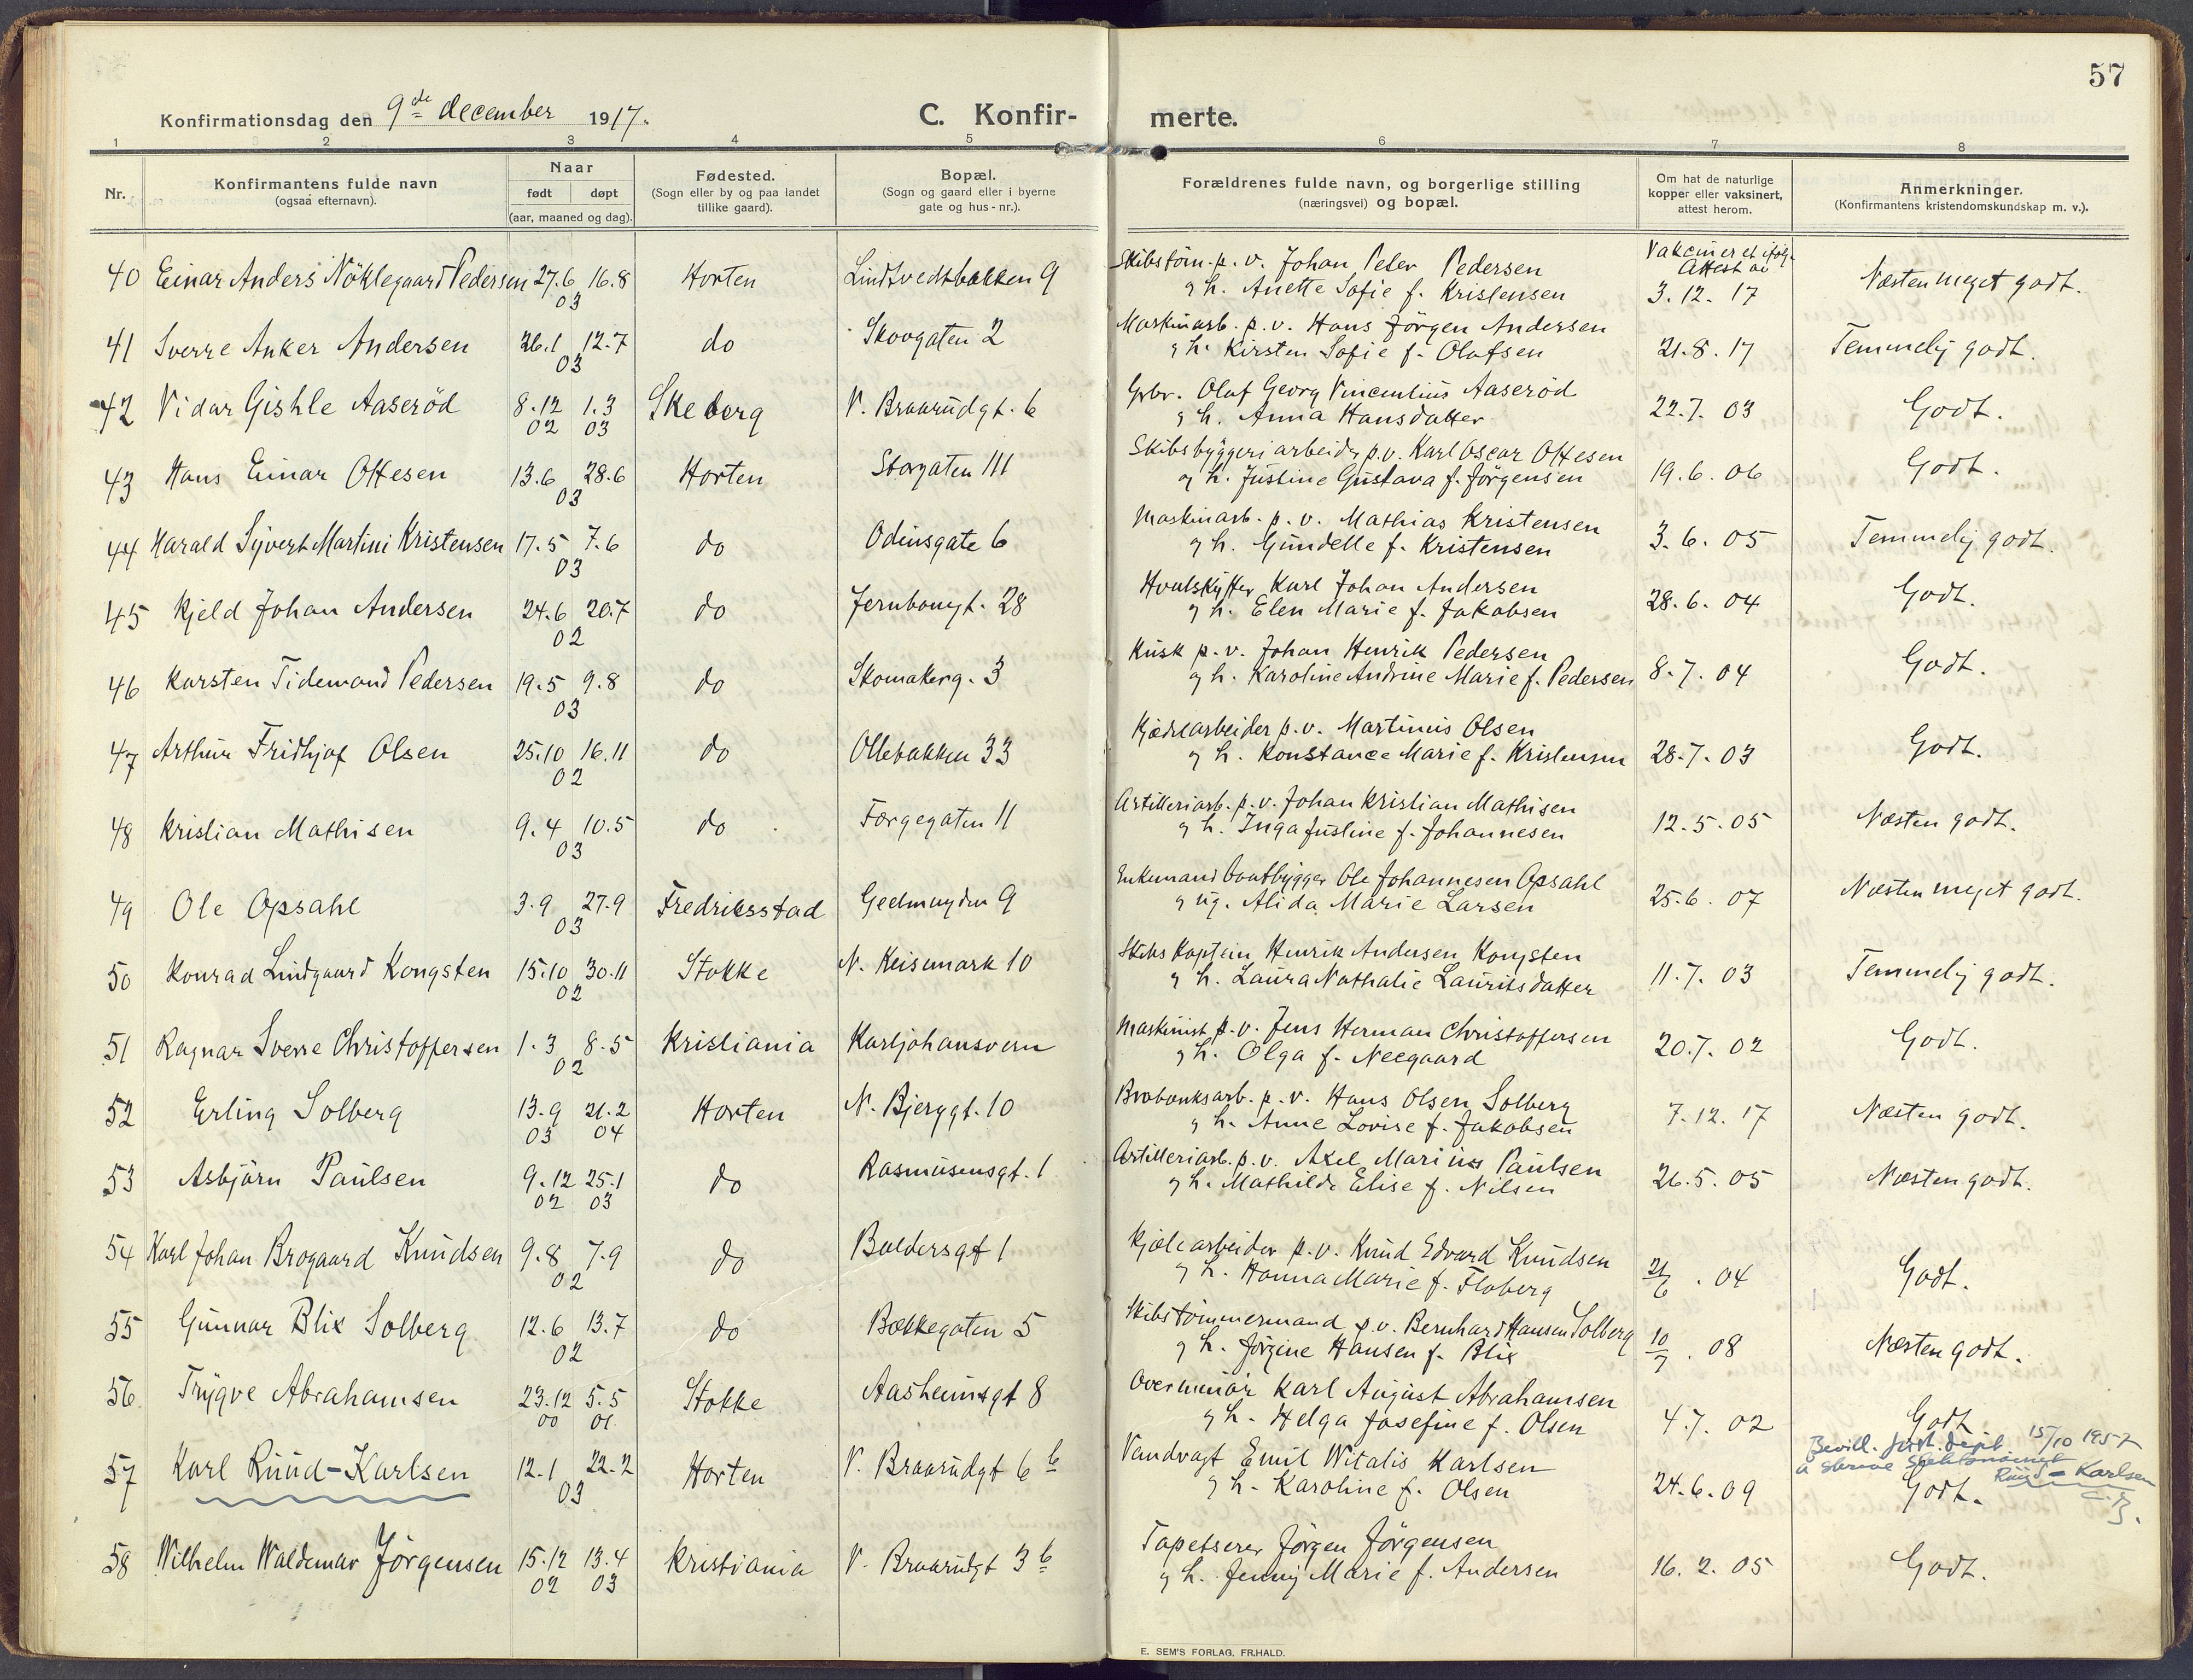 57
Konfirmationsdag den 9de december 1917.
C. Konfir-merte.
1 2 3 4 5 6 7 8
Nr.
Konfirmantens fulde navn
(ogsaa efternavn).
Naar
født døpt
(aar, maaned og dag).
Fødested.
(Sogn eller by og paa landet
tillike gaard).
Bopæl.
(Sogn og gaard eller i byerne
gate og hus-nr.).
Forældrenes fulde navn, og borgerlige stilling
(næringsvei) og bopæl.
Om hat de naturlige
kopper eller vaksinert,
attest herom.
Anmerkninger.
(Konfirmantens kristendomskundskap m. v.).
40 Einar Anders Nöklegaard Pedersen 27.6 16.8 03 Horten Lindtvedtbakken 9
Skibstöm. p. v. Johan Peter Pedersen
og h. Anette Sofie f. Kristensen
Vakcineret ifølg. Attest av 3.12.17 Næsten meget godt.
41 Sverre Anker Andersen 26.1 12.7 03 do Skovgaten 2
Maskinarb. p. v. Hans Jörgen Andersen
og h. Kirsten Sofie f. Olafsen
21.8.17 Temmelig godt.
42 Vidar Gishle Aaseröd 8.12 02 1.3 03 Skeberg V. Braarudgt. 6
Grbr. Olaf Georg Vincentius Aaseröd
og h. Anna Hansdatter
22.7.03 Godt.
43 Hans Einar Ottesen 13.6 28.6 03 Horten Storgaten 111
Skibsbyggeriarbeider p.v. Karl Oscar Ottesen
og h. Justine Gustava f. Jörgensen
19.6.06 Godt.
44 Harald Syvert Martini Kristensen 17.5 7.6 03 do Odinsgate 6
Maskinarb. p. v. Mathias Kristensen
og h. Gundelle f. Kristensen
3.6.05 Temmelig godt.
45 Kjeld Johan Andersen 24.6 20.7 02 do Jernbanegt. 28
Hvalskytter Karl Johan Andersen
og h. Elen Marie f. Jakobsen
28.6.04 Godt.
46 Karsten Tidemand Pedersen 19.5 9.8 03 do Skomakerg. 3
Kusk p. v. Johan Henrik Pedersen
og h. Karoline Andrine Marie f. Pedersen
8.7.04 Godt.
47 Arthur Fridhjof Olsen 25.10 16.11 02 do Ollebakken 33
Kjedelarbeider p.v. Martinius Olsen
og h. Konstance Marie f. Kristensen
28.7.03 Godt.
48 Kristian Mathisen 9.4 10.5 03 do Færgegaten 11
Artilleriarb. p.v. Johan Kristian Mathisen
og h. Inga Justine f. Johannesen
12.5.05 Næsten godt.
49 Ole Opsahl 3.9 27.9 03 Fredriksstad Geelmuyden 9
Enkemand baatbygger Ole Johannesen Opsahl
og ug. Alida Marie Larsen
25.6.07 Næsten meget godt.
50 Konrad Lindgaard Kongsten 15.10 30.11 02 Stokke N. Keisemark 10
Skibs Kaptein Henrik Andersen Kongsten
og h. Laura Nathalie Lauritsdatter
11.7.03 Temmelig godt.
51 Ragnar Sverre Christoffersen 1.3 8.5 02 Kristiania Karljohansvern
Maskinist p. v. Jens Herman Christoffersen
og h. Olga f. Neegaard
20.7.02 Godt.
52 Erling Solberg 13.9 03 21.2 04 Horten N. Bjerggt. 10
Brobænksarb. p. v. Hans Olsen Solberg
og h. Anne Lovise f. Jakobsen
7.12.17 Næsten godt.
53 Asbjörn Paulsen 9.12 02 25.1 03 do Rasmusensgt. 1
Artilleriarb. p.v. Axel Marius Paulsen
og h. Mathilde Elise f. Nilsen
26.5.05 Næsten godt.
54 Karl Johan Brogaard Knudsen 9.8 7.9 02 do Baldersgt 1
Kjelearbeider p.v. Knud Edvard Knudsen
og h. Hanna Marie f. Floberg
21/6.04 Godt.
55 Gunnar Blix Solberg 12.6 13.7 02 do Bækkegaten 5
Skibstömmermand p.v. Bernhard Hansen Solberg
og h. Jörgine Hansen f. Blix
10/7.08 Næsten godt.
56 Trygve Abrahamsen 23.12 00 5.5 01 Stokke Aasheimsgt 8
Overminör Karl August Abrahamsen
og h. Helga Josefine f. Olsen
4.7.02 Godt
57 Karl Ruud-Karlsen 12.1 22.2 03 Horten V. Braarudgt 6 b
Vandvagt Emil Witalis Karlsen
og h. Karoline f. Olsen
24.6.09 Godt.
Bevill. just.dept 15/10 1957
å skrive slektsnavnet
Ruud-Karlsen
58 Wilhelm Waldemar Jörgensen 15.12 02 13.4 03 Kristiania V. Braarudgt 3 b
Tapetserer Jörgen Jörgensen
og h. Jenny Marie f. Andersen
16.2.05 Godt.
E. SEM'S FORLAG, FR.HALD.